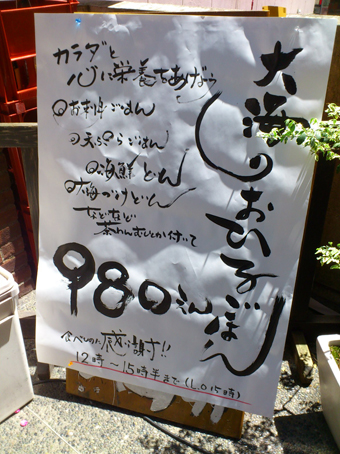 大海のおひるごはん
カラダと
心に栄養をあげよう
のお刺身ごはん
の天ぷらごはん
の海鮮どん
の大海づけどん
などなど
茶わんむしとか付いて
980えん
食べしのに感謝す!!
12時〜15時半まで(L.O 15時)